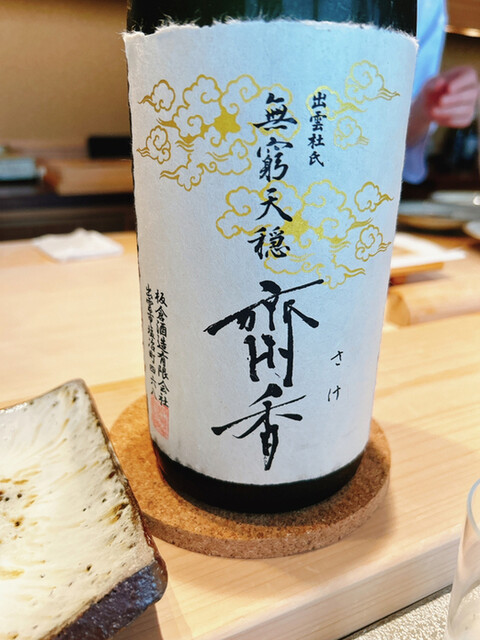 出雲杜氏
無窮天穏
齋香
さけ
板倉酒造有限会社
出雲市塩冶町四六八